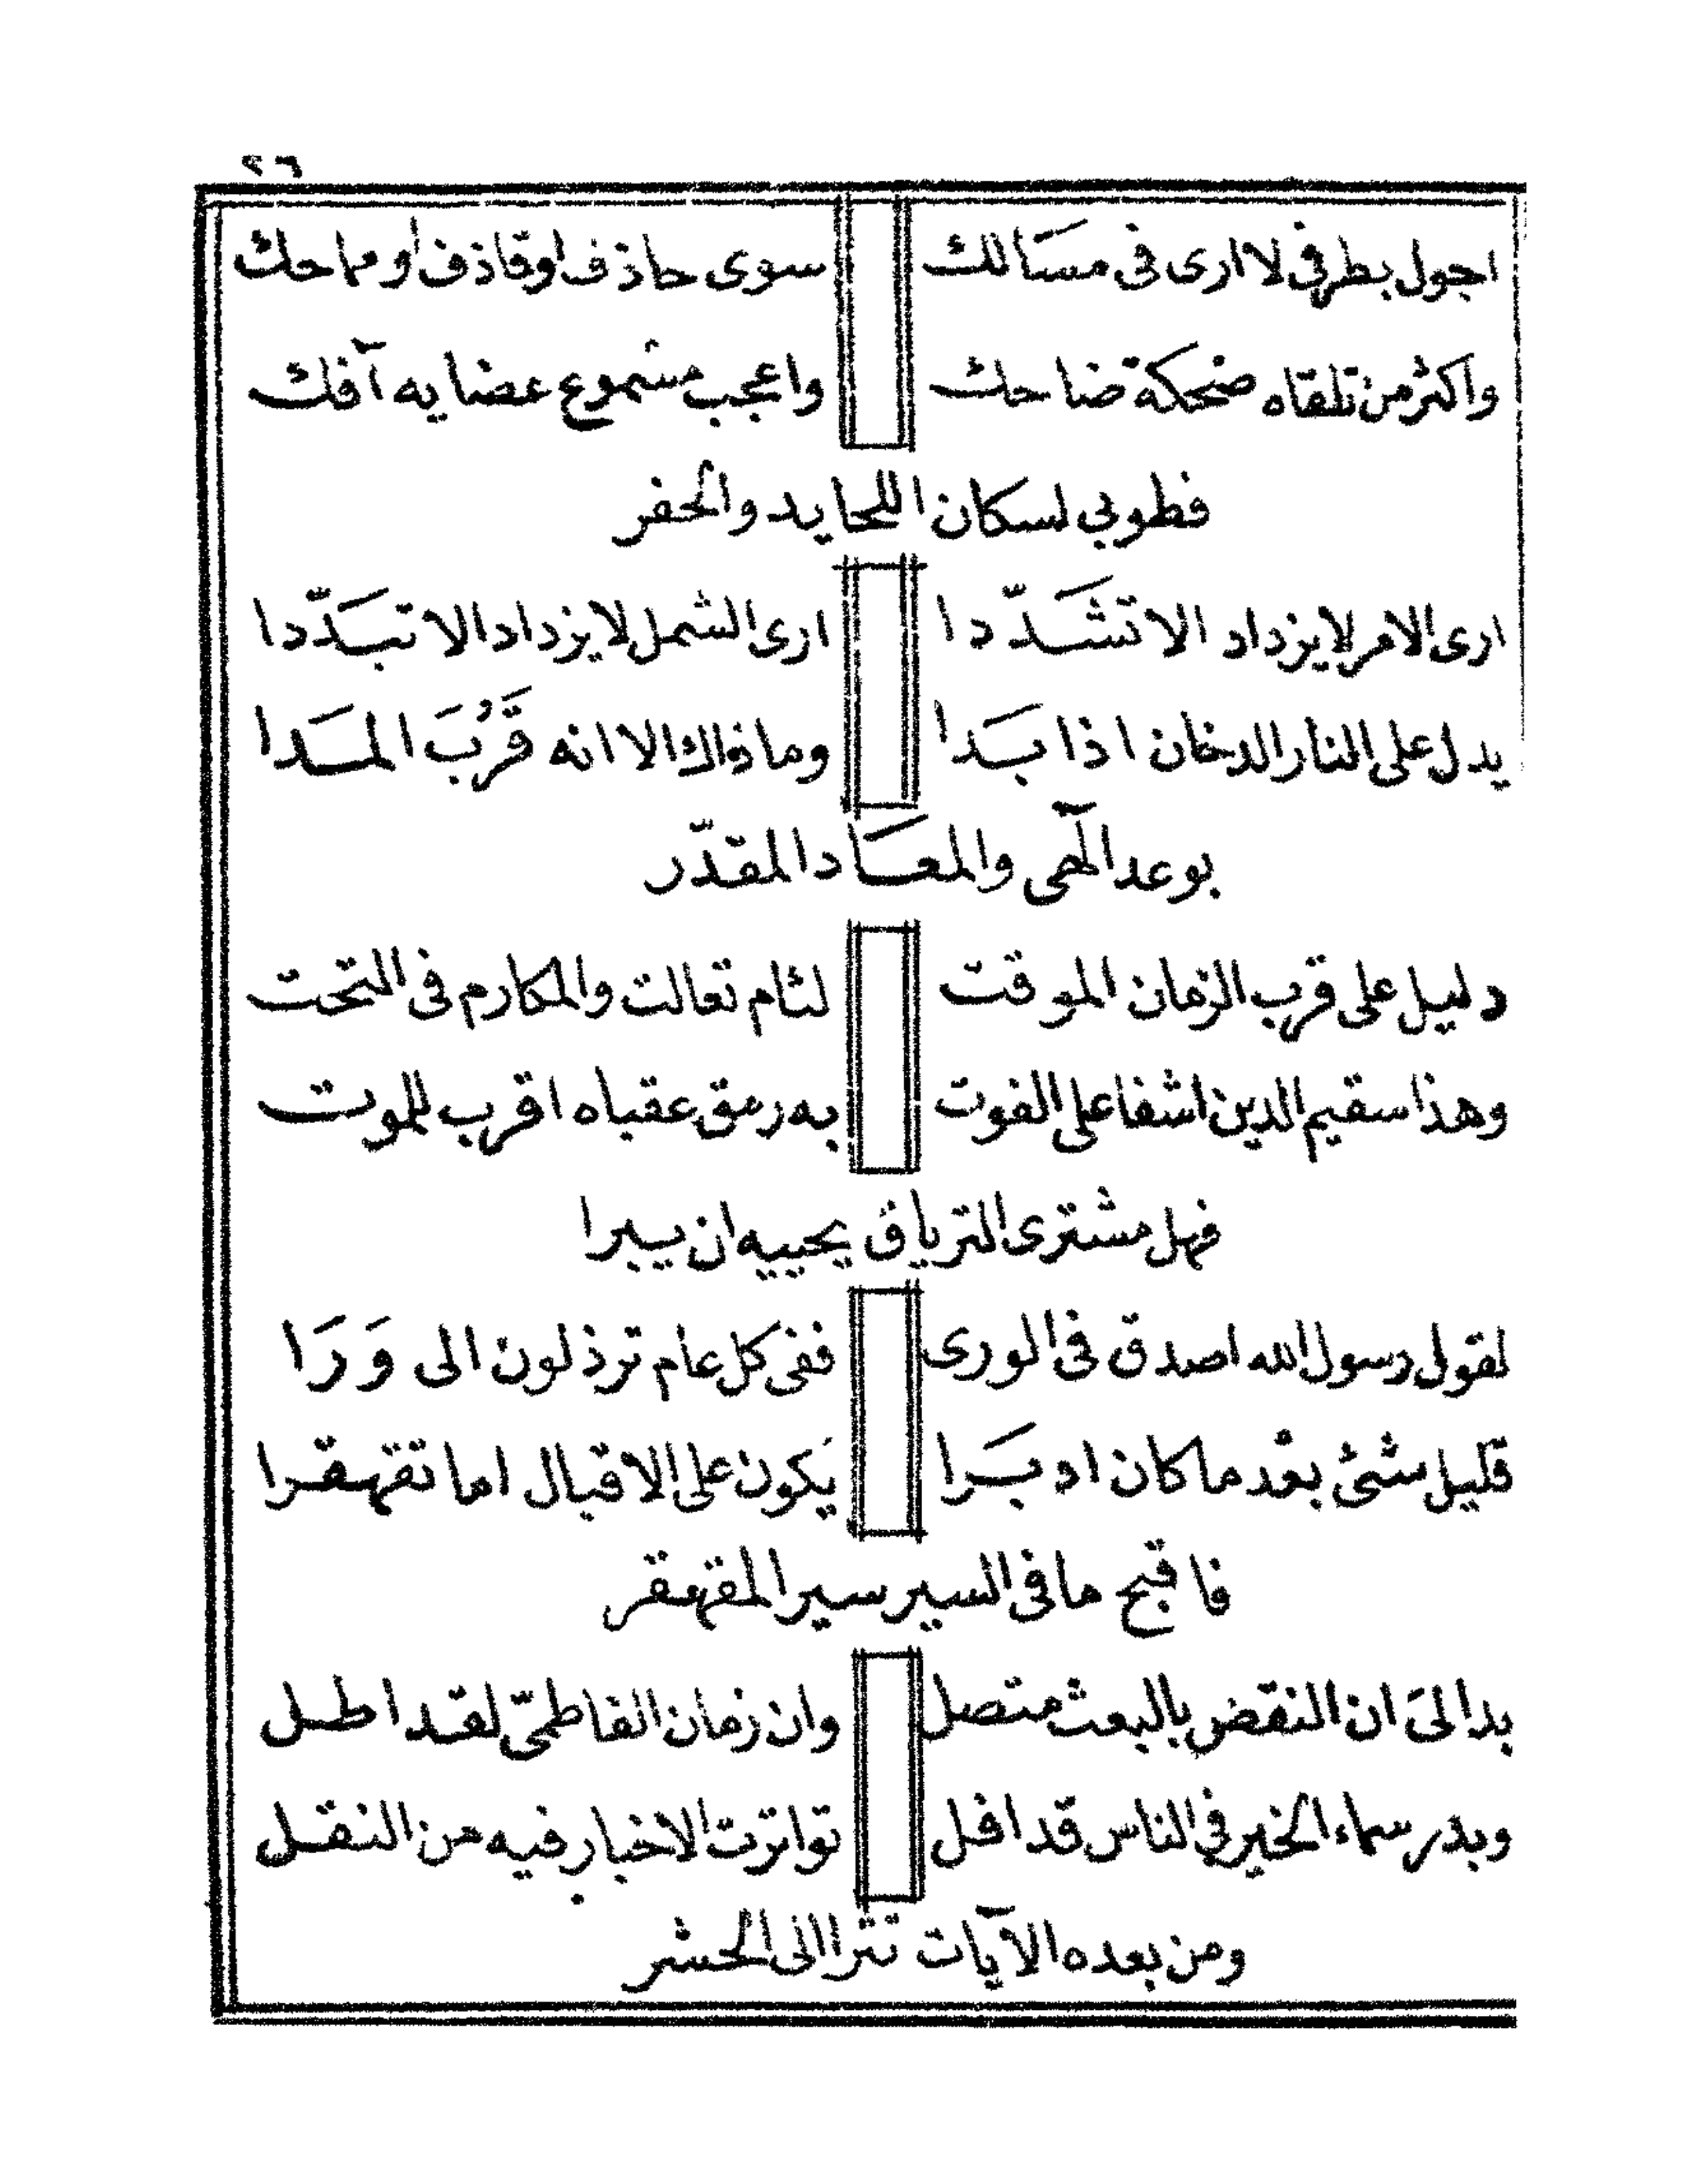 ٢٦
اجول بطرفي لا ارى فى مسَالك سوى حاذف او قاذف او مماحك
واكثر من تلقاه ضحكة ضاحك واعجب مشموع عضايه آفك
فطوبي لسكان اللحايد والحفر
ارى الامر لا يزداد الا تشَدّدا ارى الشمل لا يزداد الا تبَدّدا
يدل على النار الدخان اذا بَدا وما ذاك الا انه قَرُبَ المَدا
بوعد الٓهى والمعَاد المقدّر
دليل على قرب الزمان الموقت لئام تعالت والمكارم فى التحت
وهذا سقيم الدين اشفا على الفوت به رمق عقباه اقرب للموت
فهل مشترى الترياق يحييه ان يبرا
لقول رسول الله اصدق فى الورى ففى كل عام ترذلون الى وَرَا
قليل شئ بعْد ما كان ادبَرا يكون على الاقبال اما تقهقرا
فاقبح ما فى السير سير المقهقر
بدا لىَ ان النقض بالبعث متصل وان زمان الفاطمىّ لقد اطل
وبدر سماء الخير في الناس قد افل تواترت الاخبار فيه من النقل
ومن بعده الآيات تترا الى الحشر